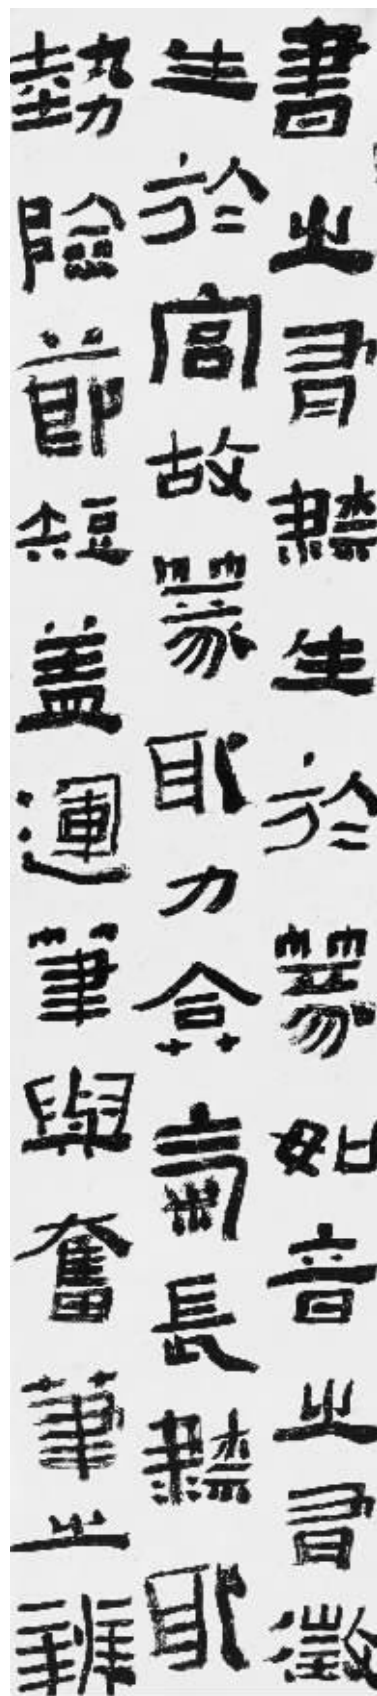 書之有隸生於篆如音之有徵
生於宮故篆取力弇氣長隸取
勢險節短蓋運筆與奮筆之辨